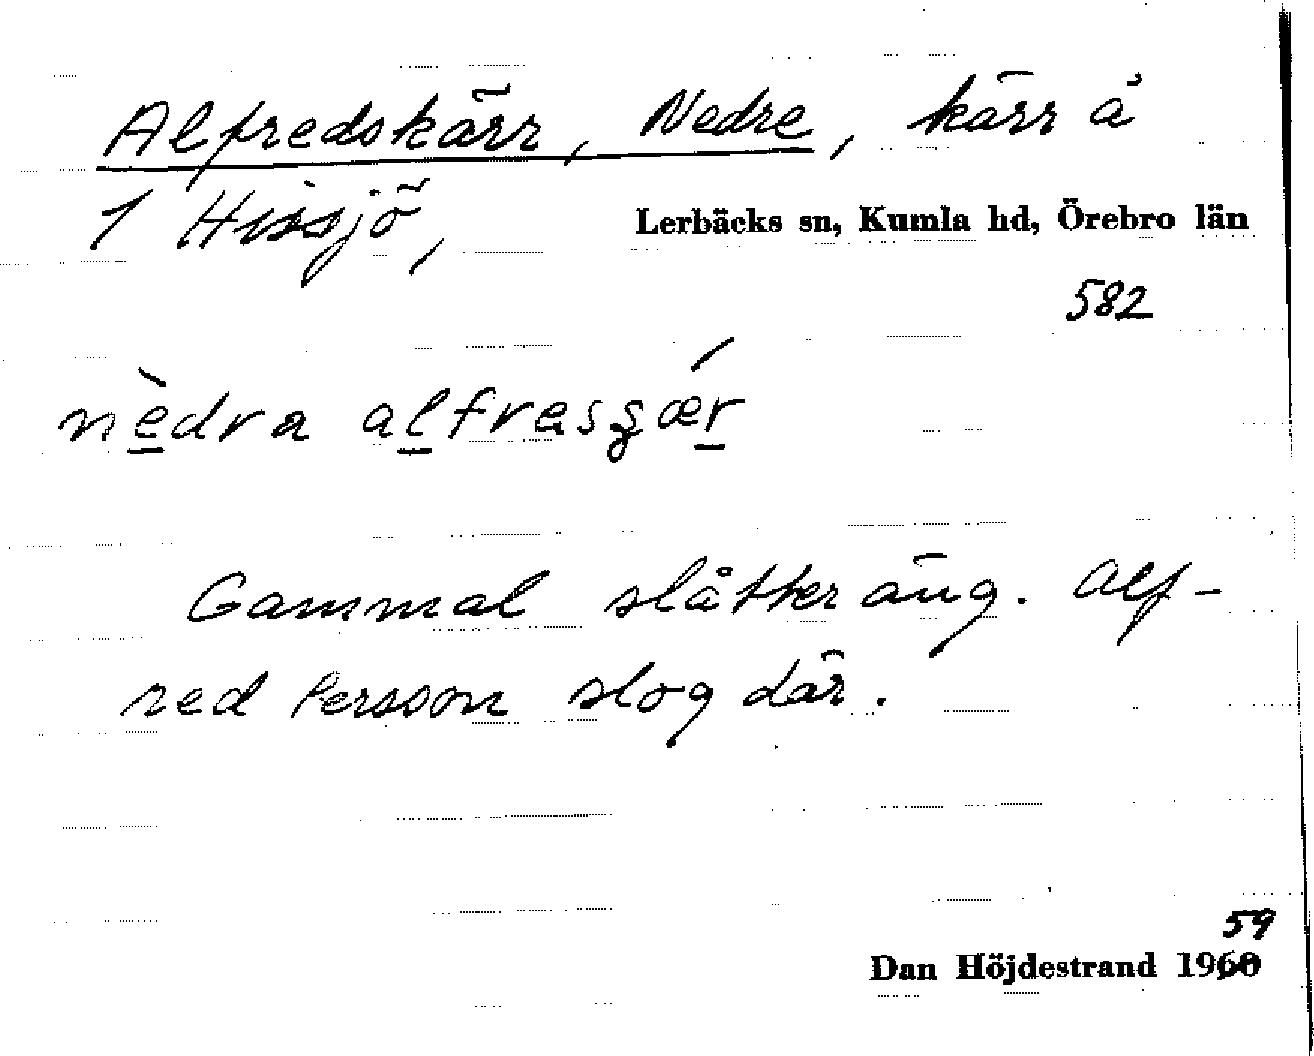 Alfredskärr, Nedre, kärr å
1 Hissjö, Lerbäcks sn, Kumla hd, Örebro län
582
nèdra alfrasʒǽr
Gammal slåtteräng. Alf-
red Persson slog där.
59
Dan Höjdestrand 1960